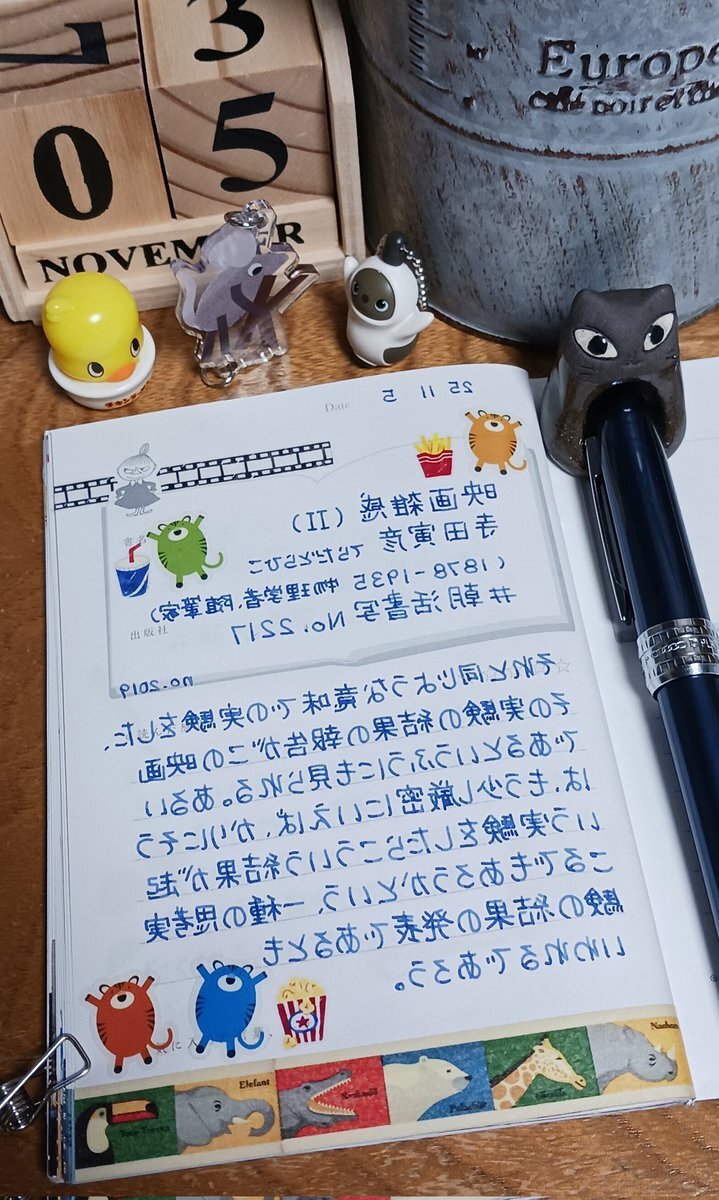 3
0 5
NOVEMBER
Europe
Date
25 11 5
書名
映画雑感 (II)
寺田寅彦 てらだとらひこ
(1878-1935 物理学者、随筆家)
#朝活書写 No.2217
出版社
no.2019
それと同じような意味での実験をした、
その実験の結果の報告がこの映画
であるというふうにも見られる。あるい
は、もう少し厳密にいえば、かりにそう
いう実験をしたらこういう結果が起
こるでもあろうかという、一種の思考実
験の結果の発表であるとも
いわれるであろう。
Elefant